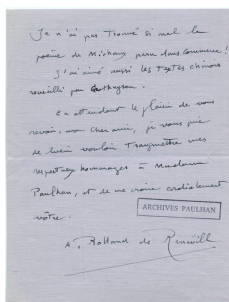 Je n'ai pas trouvé si mal le
poème de Michaux paru dans Commerce !
J'ai aimé aussi les textes chinois
recueilli par Groethuysen.
En attendant le plaisir de vous
revoir, mon cher ami, je vous prie
de bien vouloir transmettre mes
respectueux hommages à Madame
Paulhan, et de me croire cordialement
vôtre.
ARCHIVES PAULHAN
A. Rolland de Renéville